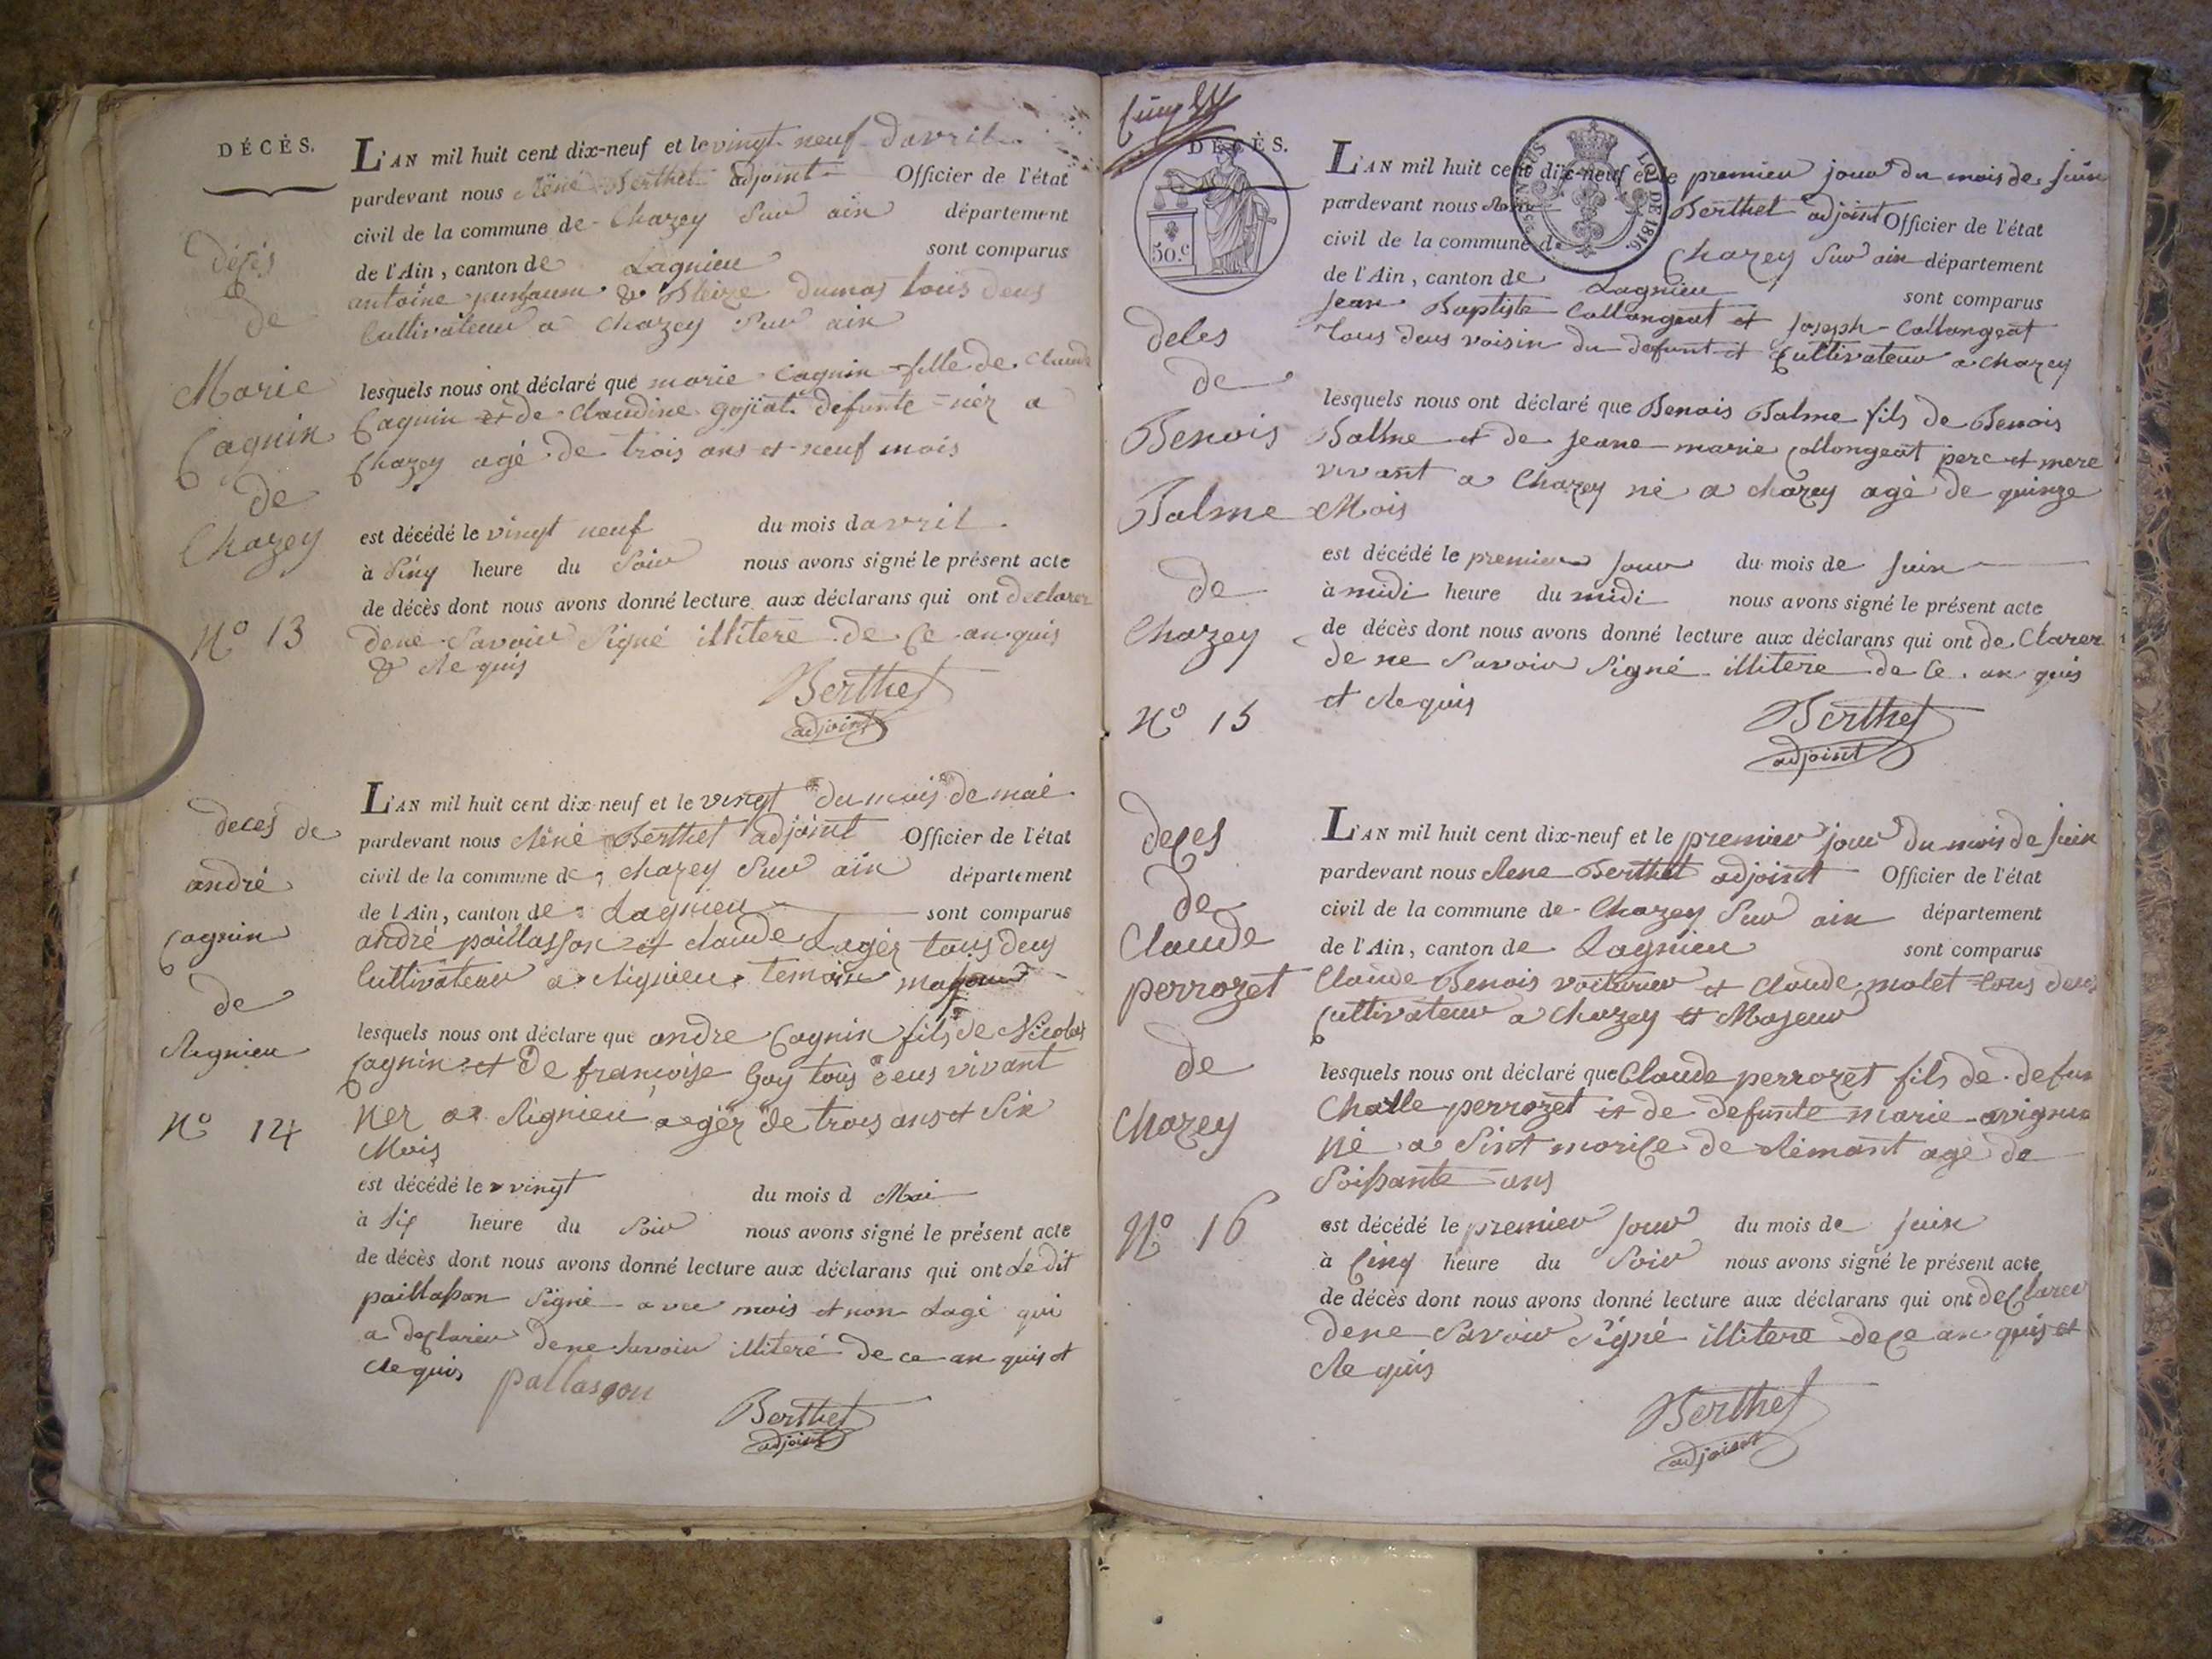 DÉCÈS.
décés
de
Marie
Cagnin
de
Chazey
N° 13
L'AN mil huit cent dix-neuf et le vingt neuf davril
pardevant nous Réné Berthet adjoint Officier de l'état
civil de la commune de Chazey Sur ain département
de l'Ain, canton de Lagnieu sont comparus
antoine & Bleize dumas tous deus
Cultivateur a Chazey Sur ain
lesquels nous ont déclaré que marie Cagnin fille de Claude
Cagnin et de Claudine gojiat defunte néz a
Chazey agé de trois ans et neuf mois
est décédé le vingt neuf du mois d avril
à Sinq heure du Soir nous avons signé le présent acte
de décès dont nous avons donné lecture aux déclarans qui ont declarer
dene Savoir Signé illitere de Ce an quis
& Re quis
Berthet
adjoint
deces de
andré
Cagnin
de
Rignieu
N° 14
L'AN mil huit cent dix-neuf et le vingt du mois de mai
pardevant nous Réné Berthet adjoint Officier de l'état
civil de la commune de chazey Sur ain département
de l'Ain, canton de Lagnieu sont comparus
andré paillasson et claude Lagér tous deus
Cultivateur a Rignieu temoin majeur
lesquels nous ont déclaré que andre Cagnin fils de Nicolas
Cagnin et de françoise Goy tous deus vivant
Ner a Rignieu agér de trois ans et Six
Mois
est décédé le vingt du mois d Mai
à Six heure du Soir nous avons signé le présent acte
de décès dont nous avons donné lecture aux déclarans qui ont Le dit
paillasson Signé avec mois et non Lagé qui
a declarer dene Savoir illiteré de ce an quis et
Re quis pallasson
Berthet
adjoint
DÉCÈS.
50.c
LOI DE 1816.
deles
de
Benois
Balme
de
Chazey
N° 15
L'AN mil huit cent dix-neuf et le premier jour du mois de Juin
pardevant nous Berthet adjoint Officier de l'état
civil de la commune de Chazey Sur ain département
de l'Ain, canton de Lagnieu sont comparus
Jean Baptiste Collongeat et Joseph Collongeat
tous deus voisin du defunt et Cultivateur a Chazey
lesquels nous ont déclaré que Benois Balme fils de Benois
Balme et de jeane marie Collongeat pere et mere
vivant a Chazey né a chazey agé de quinze
Mois
est décédé le premier Jour du mois de Juin
à midi heure du midi nous avons signé le présent acte
de décès dont nous avons donné lecture aux déclarans qui ont de Clarer
de ne Savoir Signé illitere de Ce an quis
et Re quis
Berthet
adjoint
deces
de
Claude
perrozet
de
Chazey
N° 16
L'AN mil huit cent dix-neuf et le premier jour du mois de Juin
pardevant nous Rene Berthet adjoint Officier de l'état
civil de la commune de Chazey Sur ain département
de l'Ain, canton de Lagnieu sont comparus
Claude Benois voiturier et claude molet tous deus
Cultivateur a Chazey et Majeur
lesquels nous ont déclaré que Claude perrozet fils de defun
Challe perrozet et de defunte marie
né a Sint morice de Rémant agé de
Soissante ans
est décédé le premier Jour du mois de Juin
à Cinq heure du Soir nous avons signé le présent acte
de décès dont nous avons donné lecture aux déclarans qui ont declarer
dene Savoir Signé illitere dece an quis et
Re quis
Berthet
adjoint